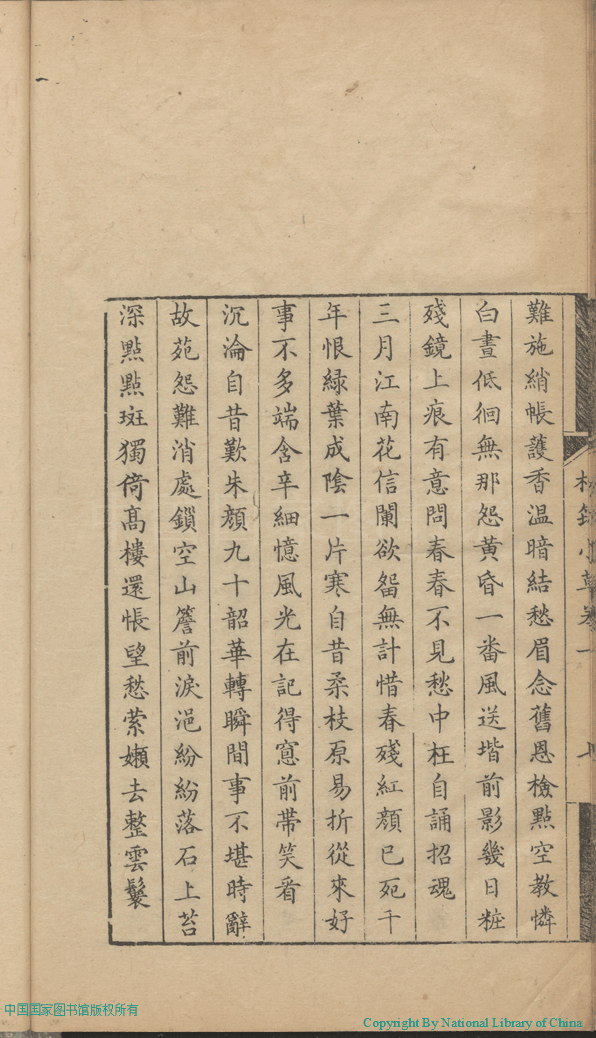 難施綃帳護香温暗結愁眉念舊恩檢點空教憐
白晝低徊無那怨黃昏一畨風送堦前影幾日粧
殘鏡上痕有意問春春不見愁中枉自誦招魂
三月江南花信闌欲畱無計惜春殘紅顏已死千
年恨緑葉成陰一片寒自昔柔枝原易折從來好
事不多端含辛細憶風光在記得窻前帶笑看
沉淪自昔歎朱顏九十韶華轉瞬間事不堪時辭
故苑怨難消處鎖空山簷前淚浥紛紛落石上苔
深點點斑獨倚高樓還悵望愁縈嬾去整雲鬟
小草卷一
中国国家图书馆版权所有
Copyright By National Library of China